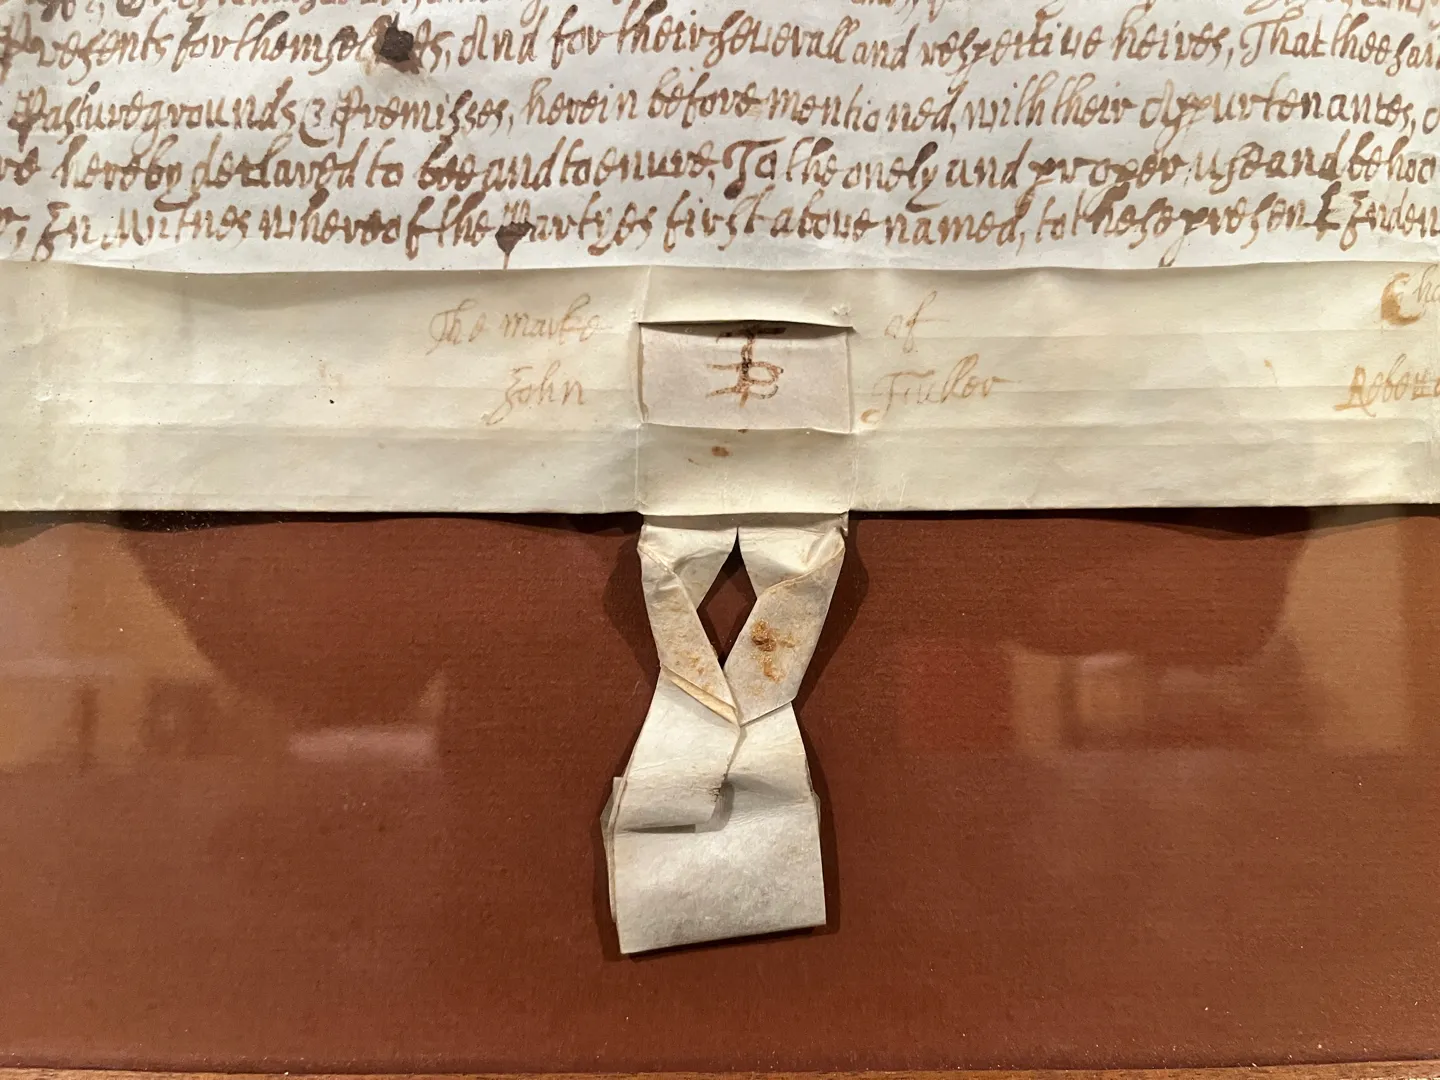 Presents for themselves, And for their severall and respective heires, That thee said
Pasture grounds & Premisses, herein before mentioned, with their Appurtenances,
hereby declared to bee and to enure, To the onely and proper use and behoo
In Witnes whereof the Partyes first above named, to these present Inden
The marke of Cha
John Tucker Robert